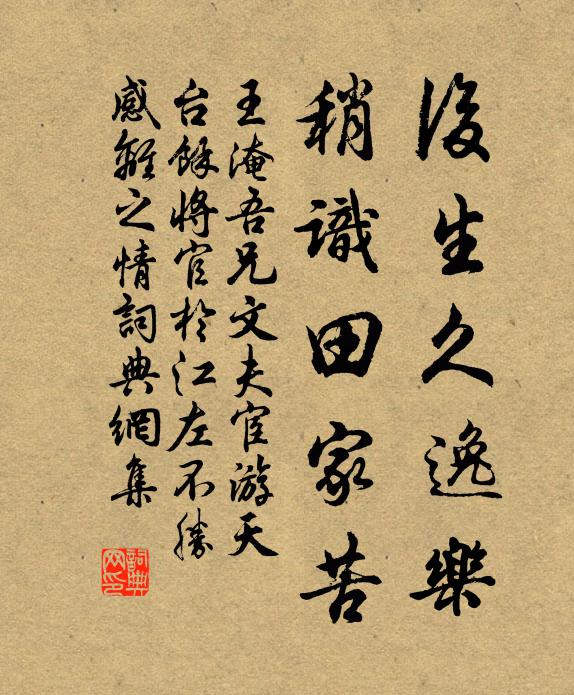 後生久逸樂
稍識田家苦
王淹吾兄文夫宦游天
台餘將官於江左不勝
感離之情詞典網集
詞典
网印